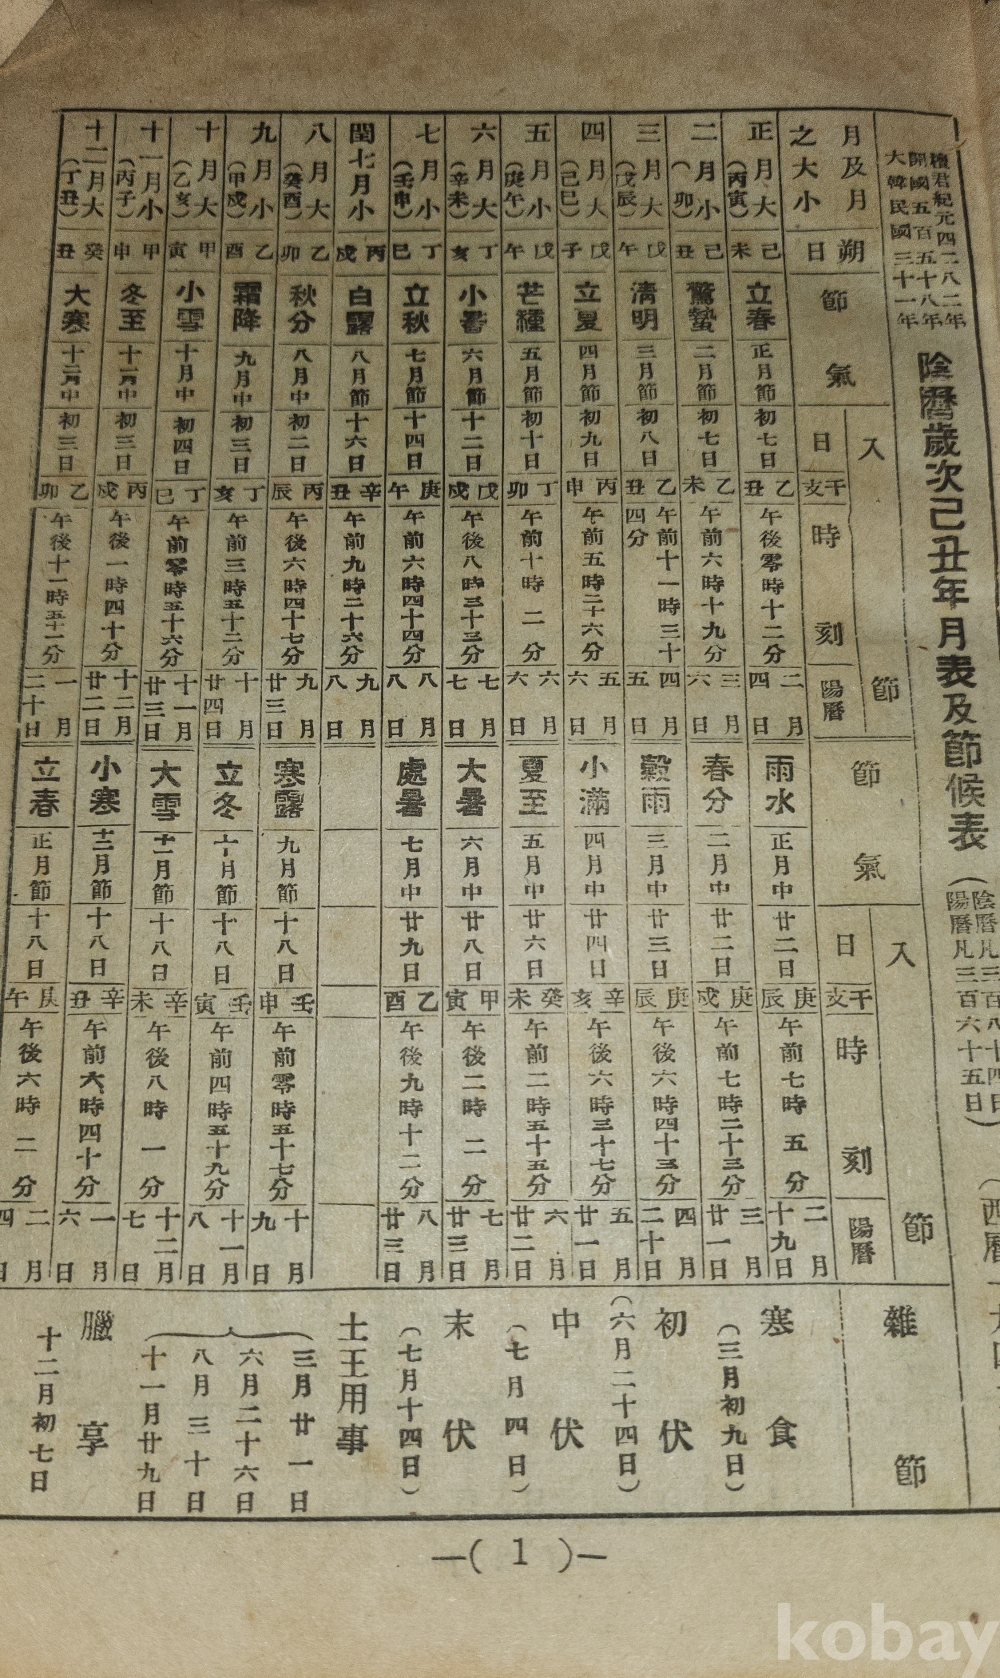 檀君紀元四二八二年
開國五百五十八年
大韓民國三十一年
陰曆歲次己丑年月表及節候表
陰曆凡三百八十四日
陽曆凡三百六十五日
月及月之大小 朔日 節氣 入節 日 干支 時刻 陽曆 節氣 入節 日 干支 時刻 陽曆 雜節
正月大(丙寅) 己未 立春 正月節 初七日 乙丑 午後零時十二分 二月四日 雨水 正月中 廿二日 庚辰 午前七時五分 二月十九日
二月小(卯) 己丑 驚蟄 二月節 初七日 乙未 午前六時十九分 三月六日 春分 二月中 廿二日 庚戌 午前七時二十三分 三月廿一日
三月大(戊辰) 戊午 淸明 三月節 初八日 乙丑 午前十一時三十四分 四月五日 穀雨 三月中 廿三日 庚辰 午後六時四十三分 四月二十日
四月大(己巳) 戊子 立夏 四月節 初九日 丙申 午前五時三十六分 五月六日 小滿 四月中 廿四日 辛亥 午後六時三十七分 五月廿一日
五月小(庚午) 戊午 芒種 五月節 初十日 丁卯 午前十時二分 六月六日 夏至 五月中 廿六日 癸未 午前二時五十五分 六月廿二日
六月大(辛未) 丁亥 小暑 六月節 十二日 戊戌 午後八時三十三分 七月七日 大暑 六月中 廿八日 甲寅 午後二時二分 七月廿三日
七月小(壬申) 丁巳 立秋 七月節 十四日 庚午 午前六時四十四分 八月八日 處暑 七月中 廿九日 乙酉 午後九時十二分 八月廿三日
閏七月小 丙戌 白露 八月節 十六日 辛丑 午前九時二十六分 九月八日
八月大(癸酉) 乙卯 秋分 八月中 初二日 丙辰 午後六時四十七分 九月廿三日 寒露 九月節 十八日 壬申 午前零時五十七分 十月九日
九月小(甲戌) 乙酉 霜降 九月中 初三日 丁亥 午前三時五十二分 十月廿四日 立冬 十月節 十八日 壬寅 午前四時五十九分 十一月八日
十月大(乙亥) 甲寅 小雪 十月中 初四日 丁巳 午前零時五十六分 十一月廿三日 大雪 十一月節 十八日 辛未 午後八時一分 十二月七日
十一月小(丙子) 甲申 冬至 十一月中 初三日 丙戌 午後一時四十分 十二月廿二日 小寒 十二月節 十八日 辛丑 午前六時四十分 一月六日
十二月大(丁丑) 癸丑 大寒 十二月中 初三日 乙卯 午後十一時五十一分 一月二十日 立春 正月節 十八日 庚午 午後六時二分 二月四日
寒食(三月初九日)
初伏(六月二十四日)
中伏(七月四日)
末伏(七月十四日)
土王用事
三月廿一日
六月二十六日
八月三十日
十一月廿九日
臘享
十二月初七日
—( 1 )—
kobay